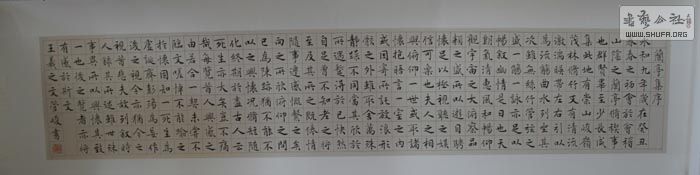 蘭亭集序
永和九年歲在癸丑
暮春之初會於會稽
山陰之蘭亭脩禊事
也群賢畢至少長咸
集此地有崇山峻嶺
茂林脩竹又有清流
激湍暎帶左右引以
為流觴曲水列坐其
次雖無絲竹管弦之
盛一觴一詠亦足以
暢敘幽情是日也天
朗氣清惠風和暢仰
觀宇宙之大俯察品
類之盛所以遊目騁
懷足以極視聽之娛
信可樂也夫人之相
與俯仰一世或取諸
懷抱晤言一室之內
或因寄所託放浪形
骸之外雖取舍萬殊
靜躁不同當其欣於
所遇蹔得於己快然
自足不知老之將
至及其所之既倦情
隨事遷感慨係之矣
向之所欣俯仰之間
已為陳跡猶不能不
以之興懷況脩短隨
化終期於盡古人云
死生亦大矣豈不痛
哉每覽昔人興感之
由若合一契未嘗不
臨文嗟悼不能喻之
於懷固知一死生為
虛誕齊彭殤為妄作
後之視今亦猶今之
視昔悲夫故列敘時
人錄其所述雖世殊
事異所以興懷其致
一也後之覽者亦將
有感於斯文
王羲之文 管峻書
书艺公社
WWW.SHUFA.ORG